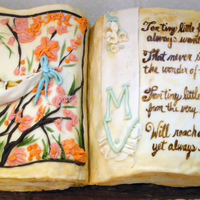 Ten tiny little f
always want
That never
the wonder of
Ten tiny little
from the very
Will reach
yet always
M